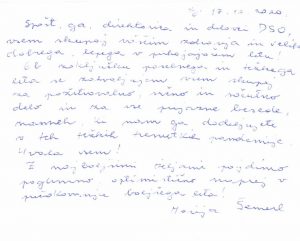 17. 12. 2020
Spošt. ga. direktorica in delavci DSO,
vsem skupaj voščim zdravja in veliko
dobrega, lepega v prihajajočem letu!
Ob zaključku posebnega in težkega
leta se zahvaljujem vsem skupaj
za požrtvovalno, mirno in
delo in za vse prijazne besede,
in nam ga
v teh težkih trenutkih pandemije.
Hvala vam!
Z najboljšimi željami pojdimo
pogumno, optimistično naprej v
pričakovanju boljšega leta!
Marija